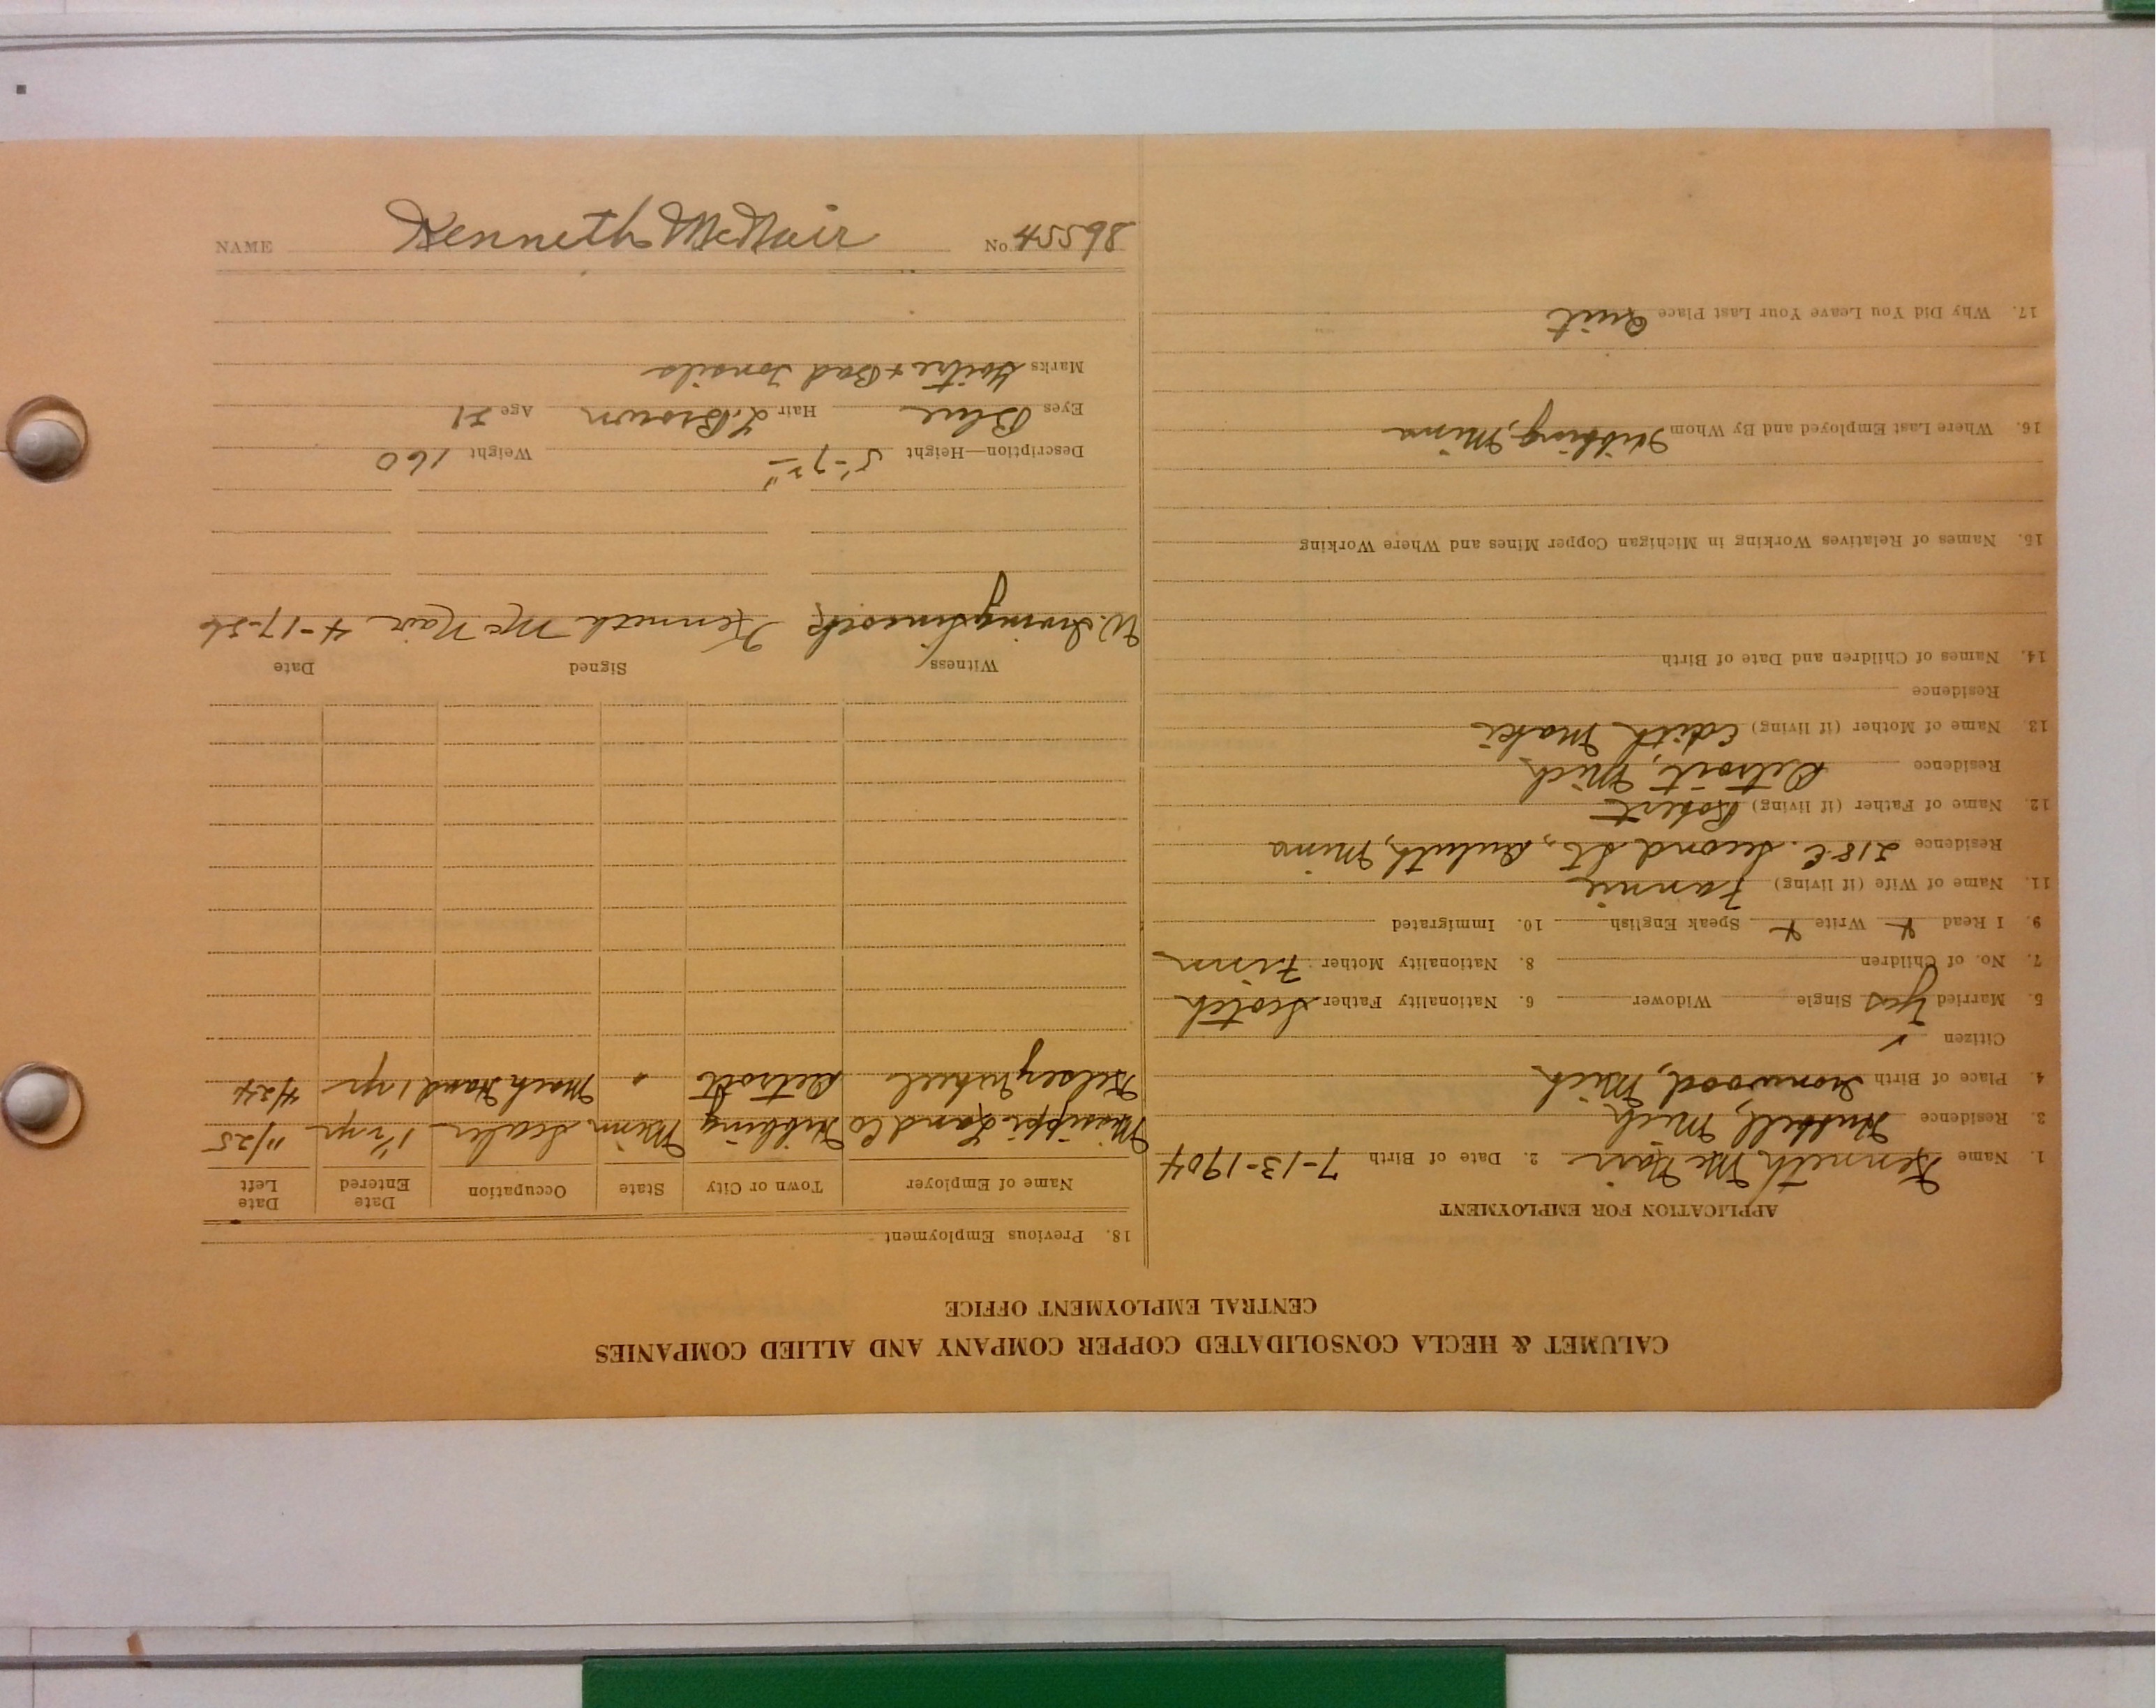 CALUMET & HECLA CONSOLIDATED COPPER COMPANY AND ALLIED COMPANIES
CENTRAL EMPLOYMENT OFFICE
APPLICATION FOR EMPLOYMENT
1. Name Kenneth McNair 2. Date of Birth 7-13-1904
3. Residence Hubbell, Mich
4. Place of Birth Ironwood, Mich
Citizen ✓
5. Married Yes Single Widower 6. Nationality Father Scotch
7. No. of Children 8. Nationality Mother Finn
9. I Read Write Speak English 10. Immigrated
11. Name of Wife (if living) Fannie
Residence 218 E. Second St, Duluth, Minn
12. Name of Father (if living) Robert
Residence Detroit, Mich
13. Name of Mother (if living) Edith Maki
Residence
14. Names of Children and Date of Birth
15. Names of Relatives Working in Michigan Copper Mines and Where Working
16. Where Last Employed and By Whom Hibbing, Minn
17. Why Did You Leave Your Last Place Quit
18. Previous Employment
Name of Employer Town or City State Occupation Date Entered Date Left
Land Co Hibbing Minn Scaler 11/25
Kelsey Wheel Detroit Mach Hand 1 yr 4/24
Witness Signed Date
W. Irving Kenneth McNair 4-17-26
Description—Height 5'-7 Weight 160
Eyes Blue Hair L. Brown Age 21
Marks Goitre + Bad Tonsils
NAME Kenneth McNair No. 45598